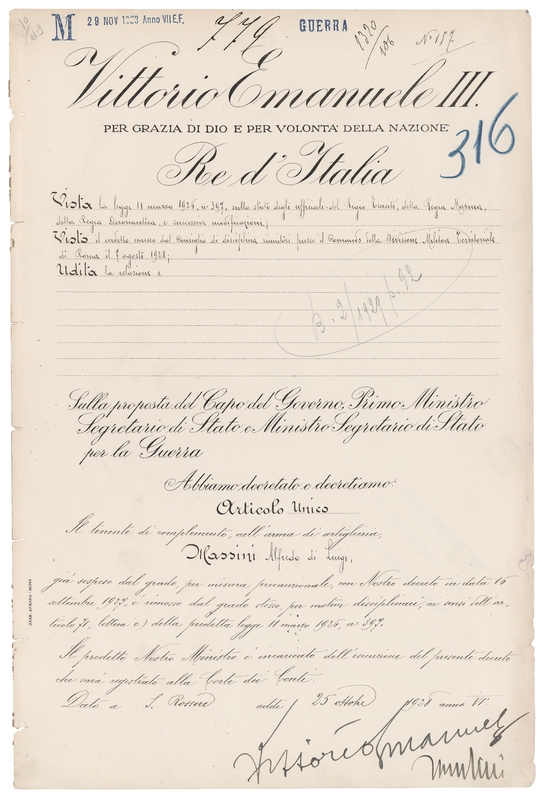 M 29 NOV 1928 Anno VII E.F. 779 GUERRA 1320/106 N° 157
Vittorio Emanuele III.
PER GRAZIA DI DIO E PER VOLONTA' DELLA NAZIONE
316
Re d'Italia
Vista la legge 11 marzo 1926, n° 397, sullo stato degli ufficiali del Regio Esercito, della Regia Marina,
della Regia Aeronautica e successive modificazioni;
Visto il verdetto emesso dal Consiglio di disciplina riunitosi presso il Comando della Divisione Militare Territoriale
di Roma il 7 agosto 1928;
Udita la relazione e
B. 2/1929 p. 92
Sulla proposta del Capo del Governo, Primo Ministro
Segretario di Stato e Ministro Segretario di Stato
per la Guerra
Abbiamo decretato e decretiamo:
Articolo Unico
Il tenente di complemento, nell'arma di artiglieria,
Massini Alfredo di Luigi,
già sospeso dal grado, per misura precauzionale, con Nostro decreto in data 16
settembre 1927, è rimosso dal grado stesso, per motivi disciplinari, ai sensi dell'ar-
ticolo 71, lettera c) della predetta legge 11 marzo 1926, n° 397.
Il predetto Nostro Ministro è incaricato dell'esecuzione del presente decreto
che sarà registrato alla Corte dei Conti.
Dato a S. Rossore addì 25 ottobre 1928 anno VI
Vittorio Emanuele
Mussolini